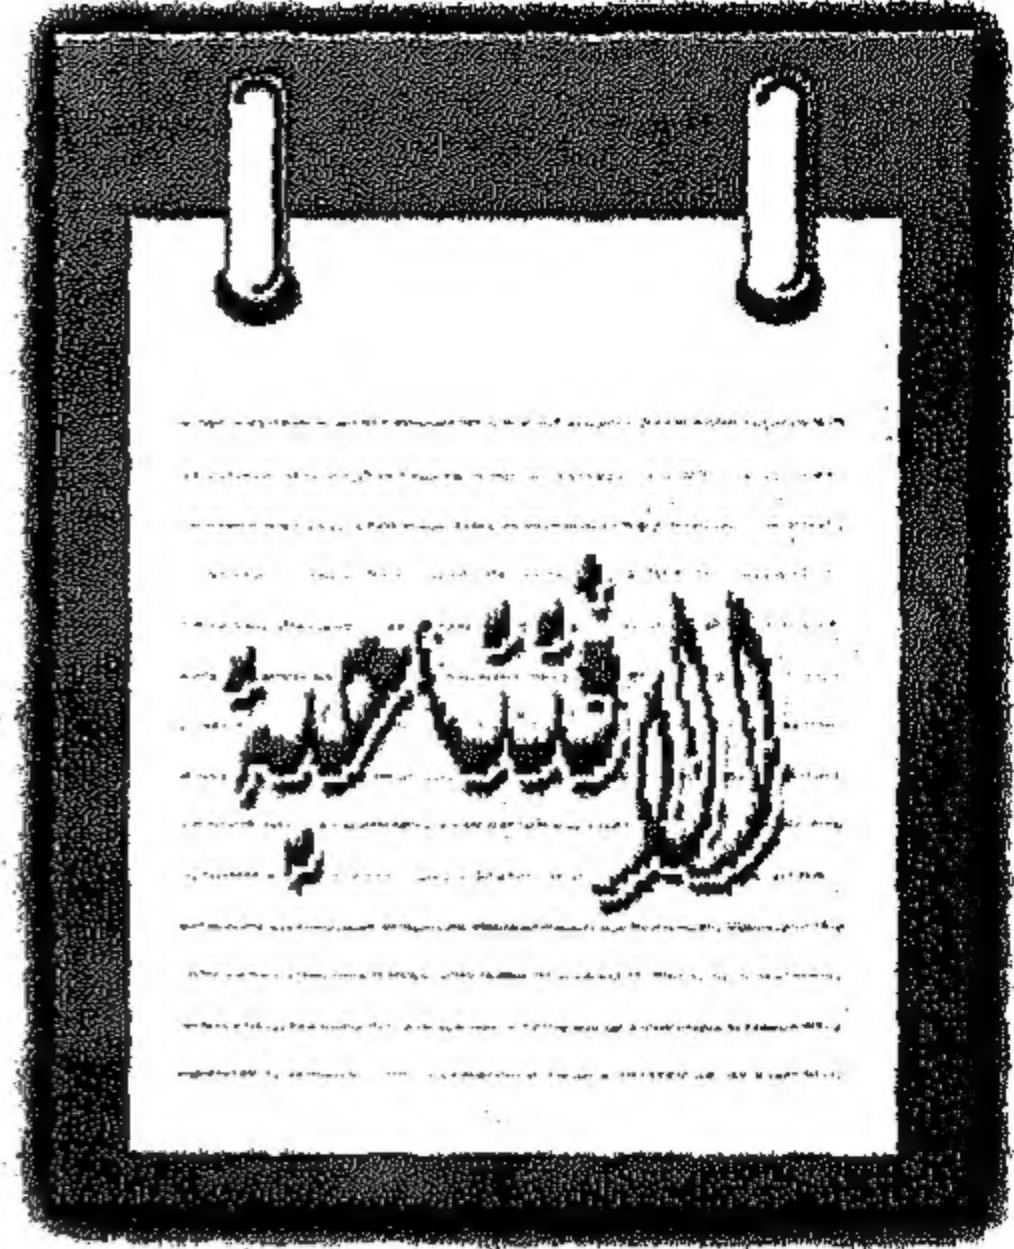 الافتتاحية